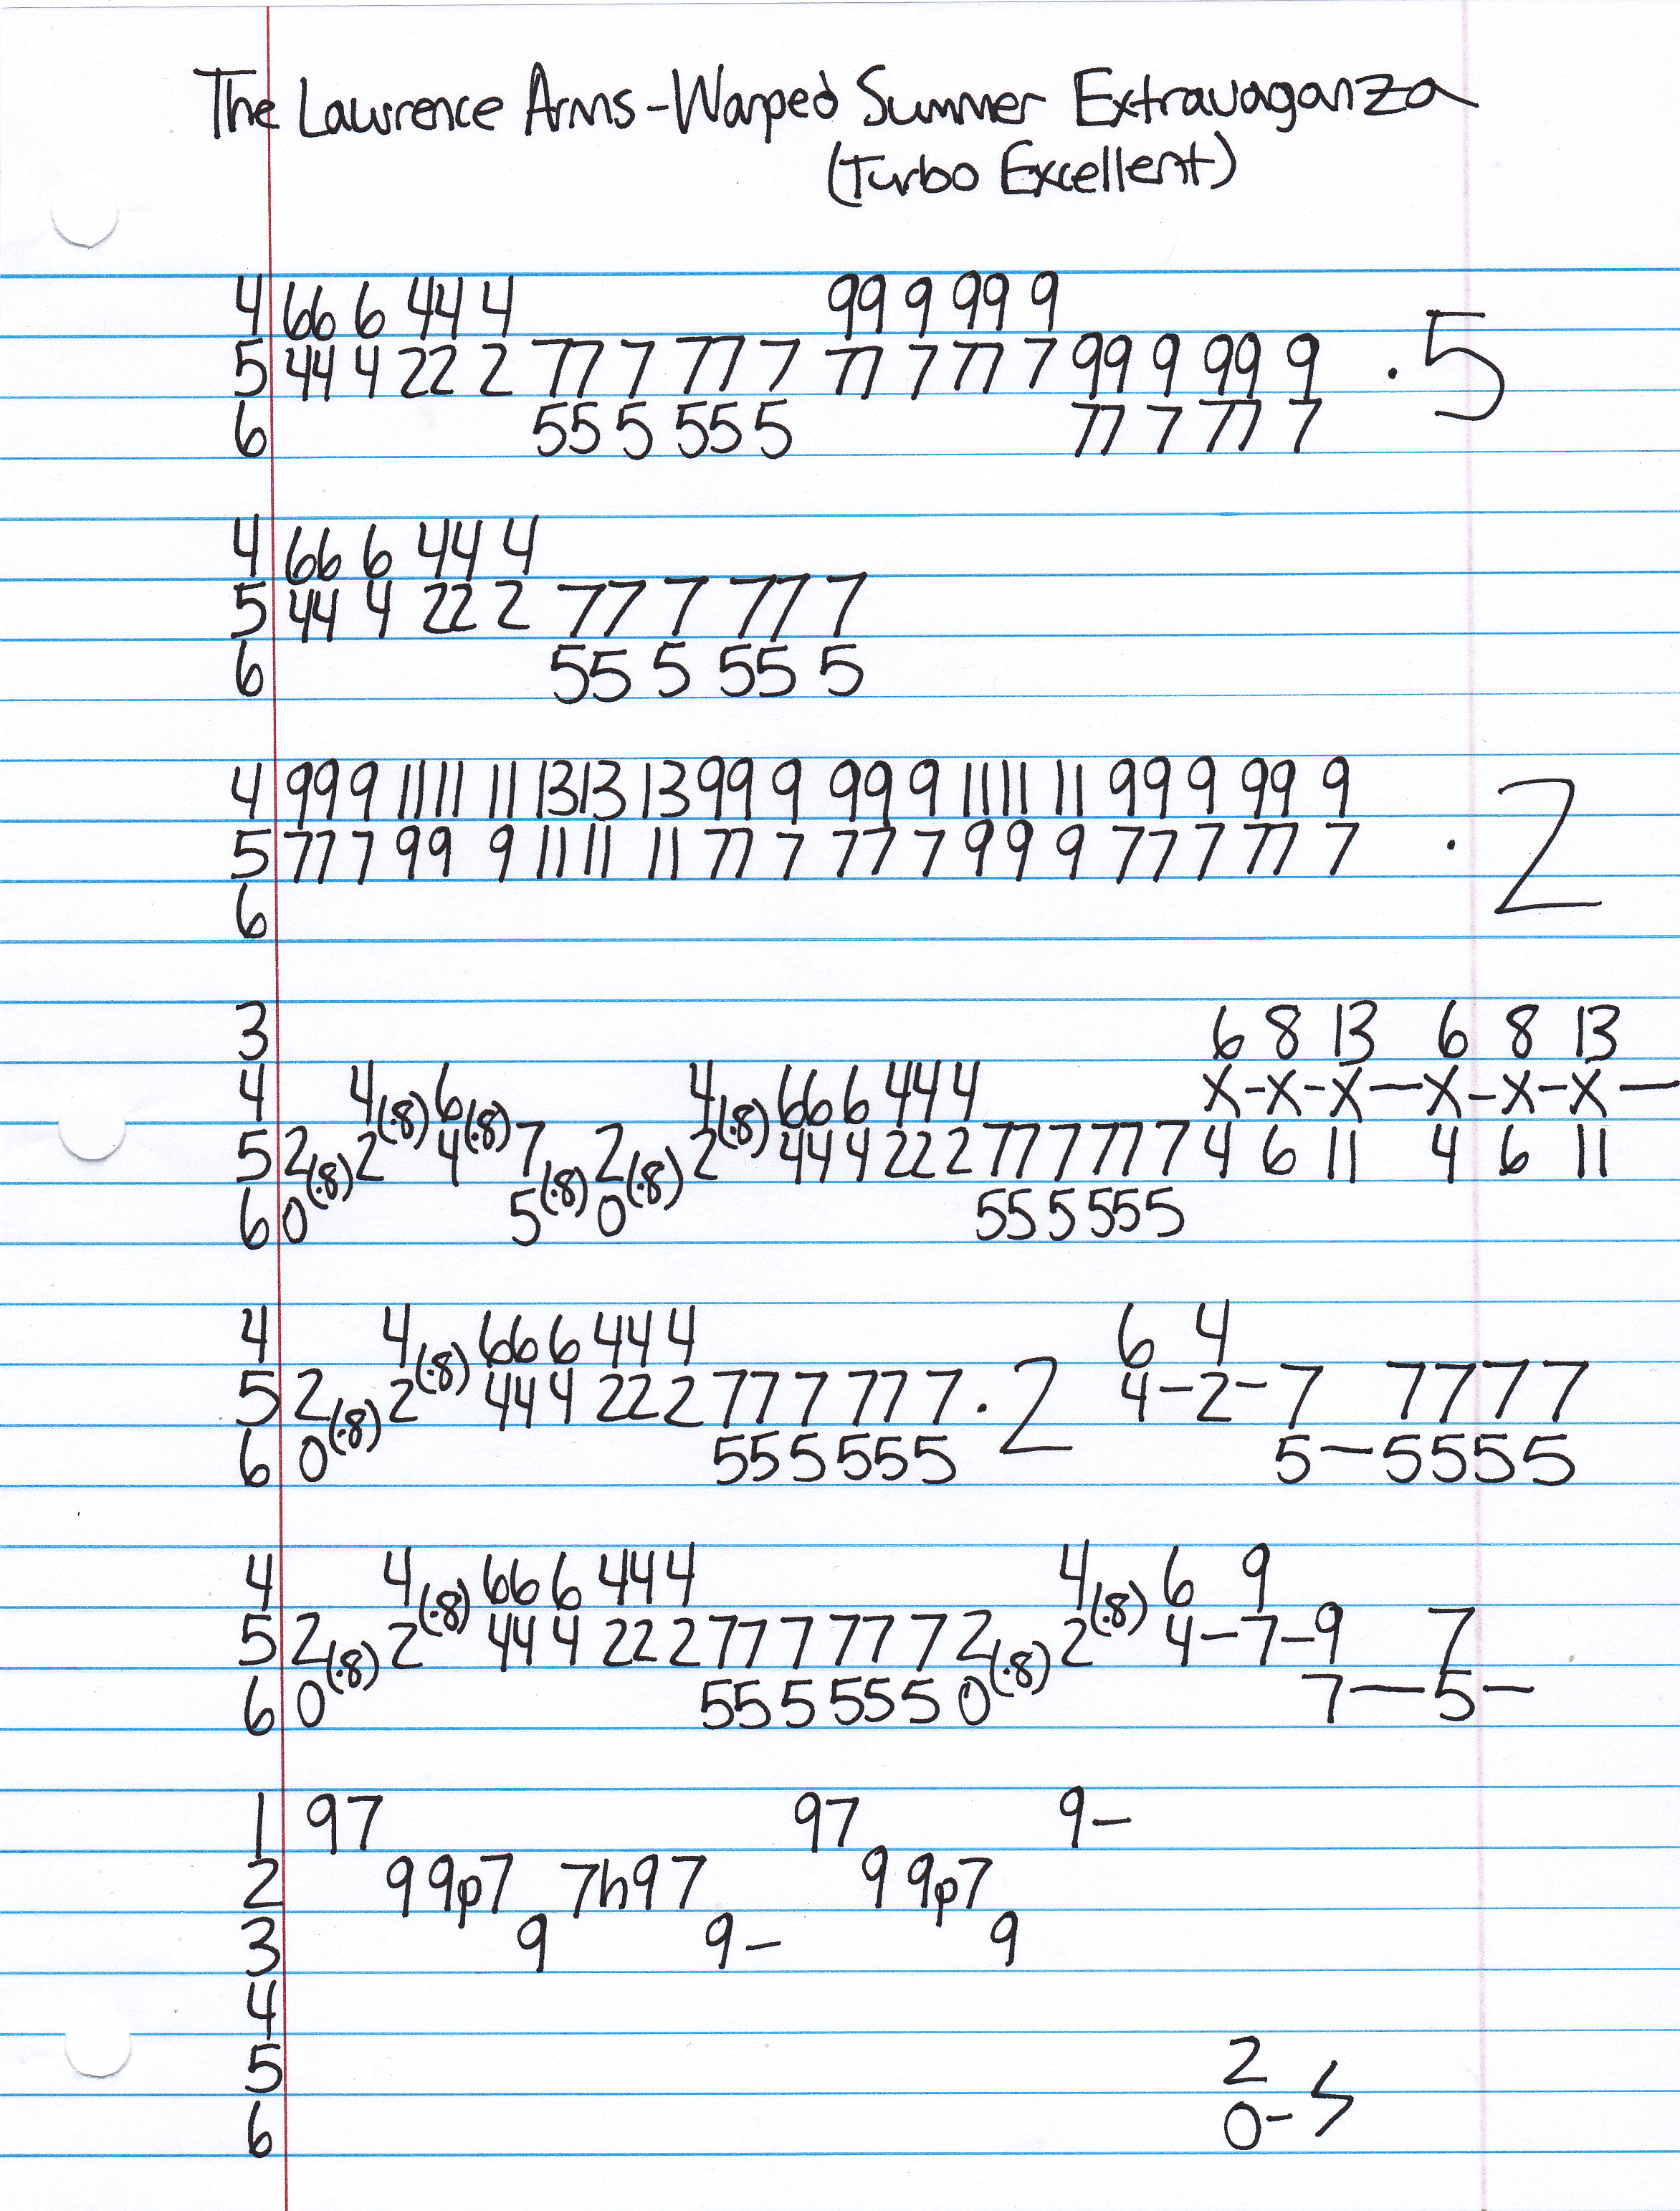 The Lawrence Arms-Warped Summer Extravaganza
(Turbo Excellent)
4 66 6 44 4 99 9 99 9
5 44 4 22 2 77 7 77 7 77 7 77 7 99 9 99 9 .5
6 55 5 55 5 77 7 77 7
4 66 6 44 4
5 44 4 22 2 77 7 77 7
6 55 5 55 5
4 99 9 1111 11 1313 13 99 9 99 9 1111 11 99 9 99 9
5 77 7 99 9 1111 11 77 7 77 7 99 9 77 7 77 7 .2
6
3 6 8 13 6 8 13
4 4(.8) 6(.8) 4(.8) 66 6 44 4 x-x-x—x-x-x—
5 2(.8) 2 4 7(.8) 2(.8) 2 44 4 22 2 77 7 77 7 4 6 11 4 6 11
6 0 5 0 55 5 55 5
4 4(.8) 66 6 44 4 6 4
5 2(.8) 2 44 4 22 2 77 7 77 7 .2 4-2-7 7777
6 0 55 5 55 5 5—5555
4 4(.8) 66 6 44 4 4(.8) 6 9
5 2(.8) 2 44 4 22 2 77 7 77 7 2(.8) 2 4-7-9 7
6 0 55 5 55 5 0 7—5-
1 97 97 9-
2 9 9p7 7h97 9 9p7
3 9 9- 9
4
5 2
6 0-